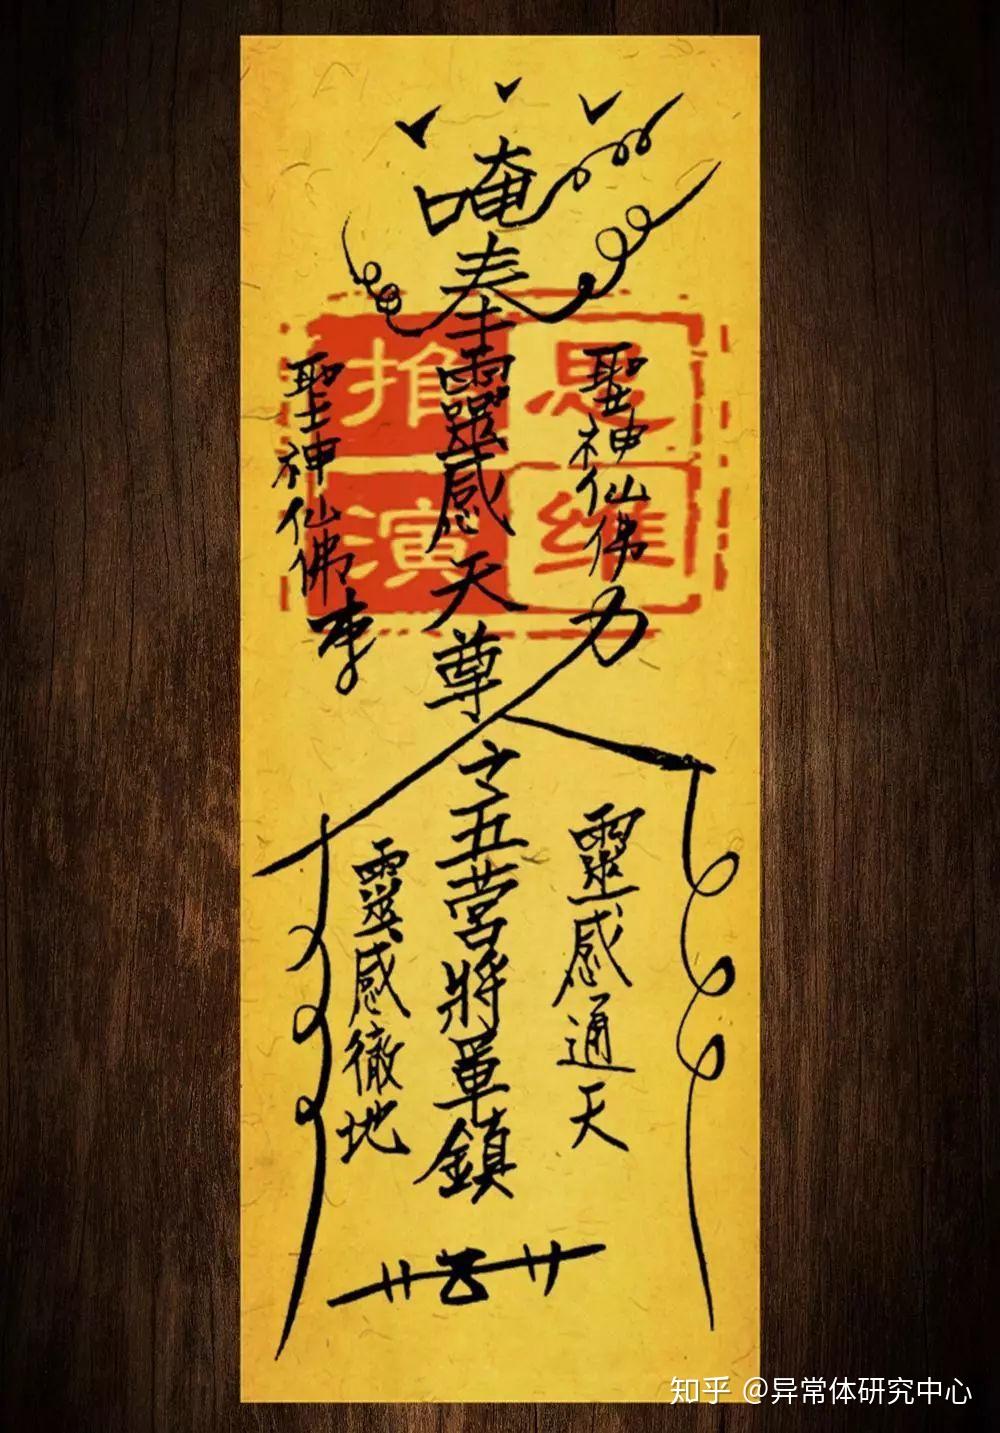 唵奉靈感天尊之五營將軍鎮
聖神仙佛力
聖神仙佛事
靈感通天
靈感徹地
思维
推演
知乎 @异常体研究中心